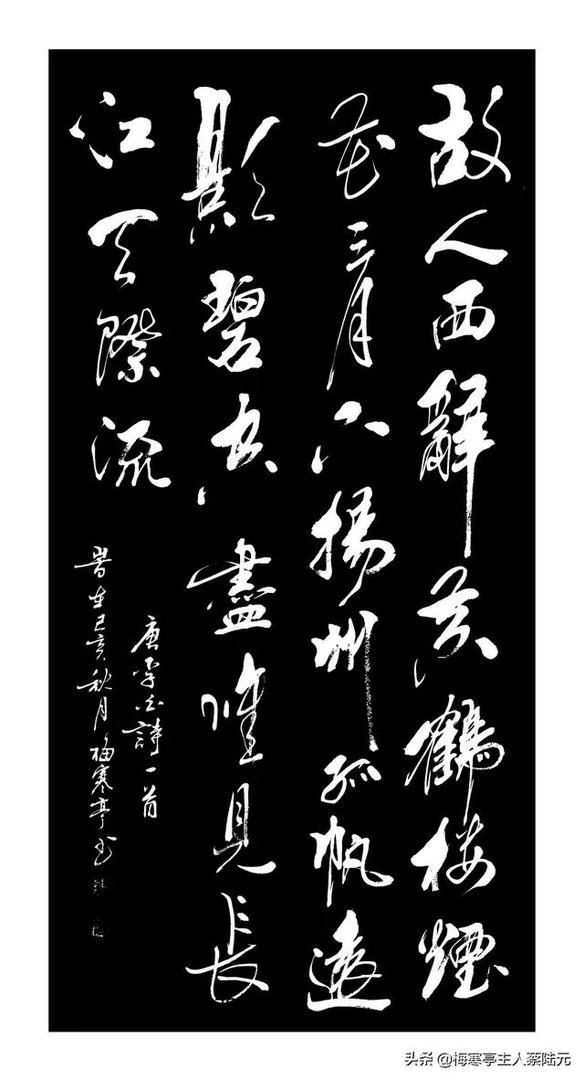 故人西辭黃鶴楼煙
花三月下揚州孤帆遠
影碧空盡惟見長
江天際流
唐李白詩一首
峕在己亥秋月梅寒亭书
头条@梅寒亭主人蔡陆元